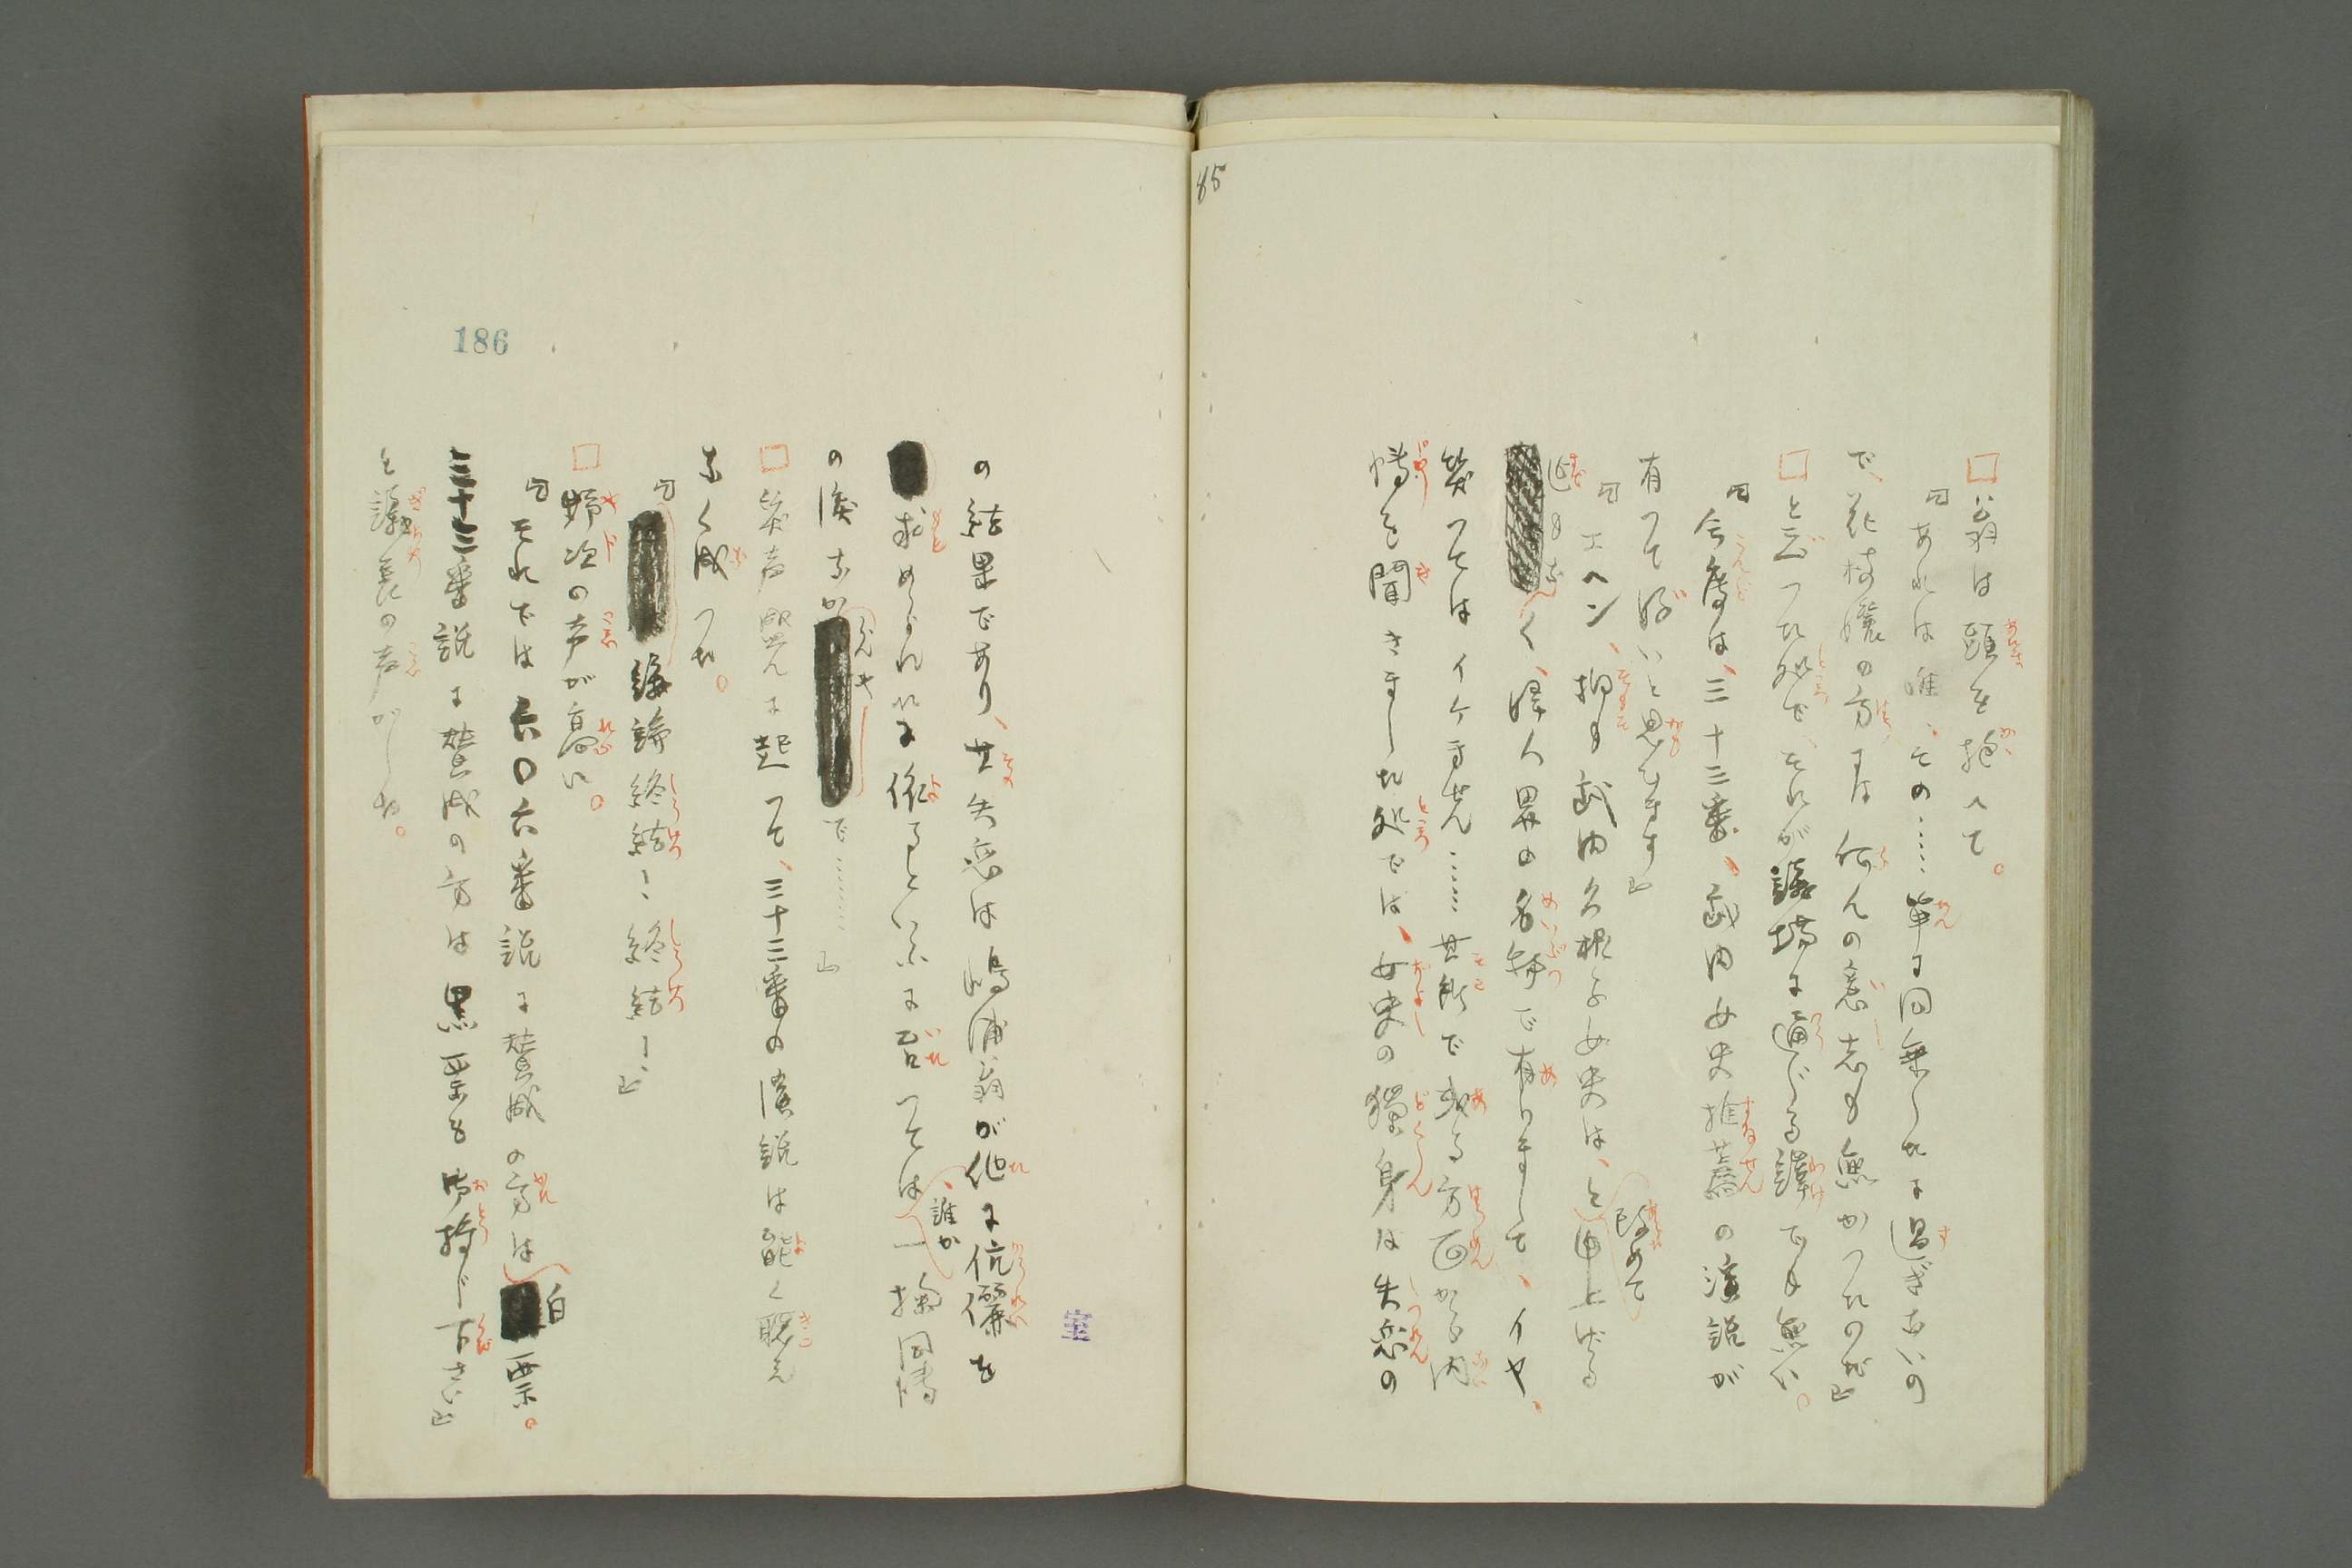 85
□翁は頭を抱へて。
「あれは唯、その……単に同乗したに過ぎないの
で、花枝嬢の方には何んの意志も無かつたのだ」
□と云つた処で、それが議場に通じる譯でも無い。
「今度は、三十三番、武内女史推薦の演説が
有つて好いと思ひます」
「エヘン、抑も武内久根子女史は、改めて申上げる
迄もなく、婦人界の名物で有りまして、イヤ、
笑つてはイケません……其所で或る方面から内
情を聞きました処では、女史の獨身は失恋の
の結果であり、其失恋は嶋浦翁が他に伉儷を
求められしに依るといふに至つては、誰か一掬同情
の涙なからんやで……」
□笑声盛んに起つて、三十三番の演説は能く聴え
なく成つた。
「議論終結！、終結！、」
□野次の声が高い。
「それでは六〇六番説に賛成の方は白票。
三十三番説に賛成の方は黒票を御投じ下さい」
と議長の声がした。
186
宝